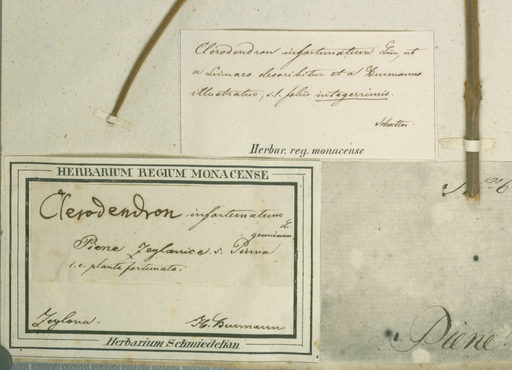 Clerodendron infortunatum Lin, ut
a Linnaeo describitur et a Burmanno
illustratur, s.t. foliis integerrimis.
Herbar. reg. monacense
HERBARIUM REGIUM MONACENSE
Clerodendron infortunatum L.
genuinum
Piene Zeylanice s. Pinna
i.e. planta fortunata.
Zeylona. H. Burmann
Herbarium Schmiedelian
No. 6
Piene